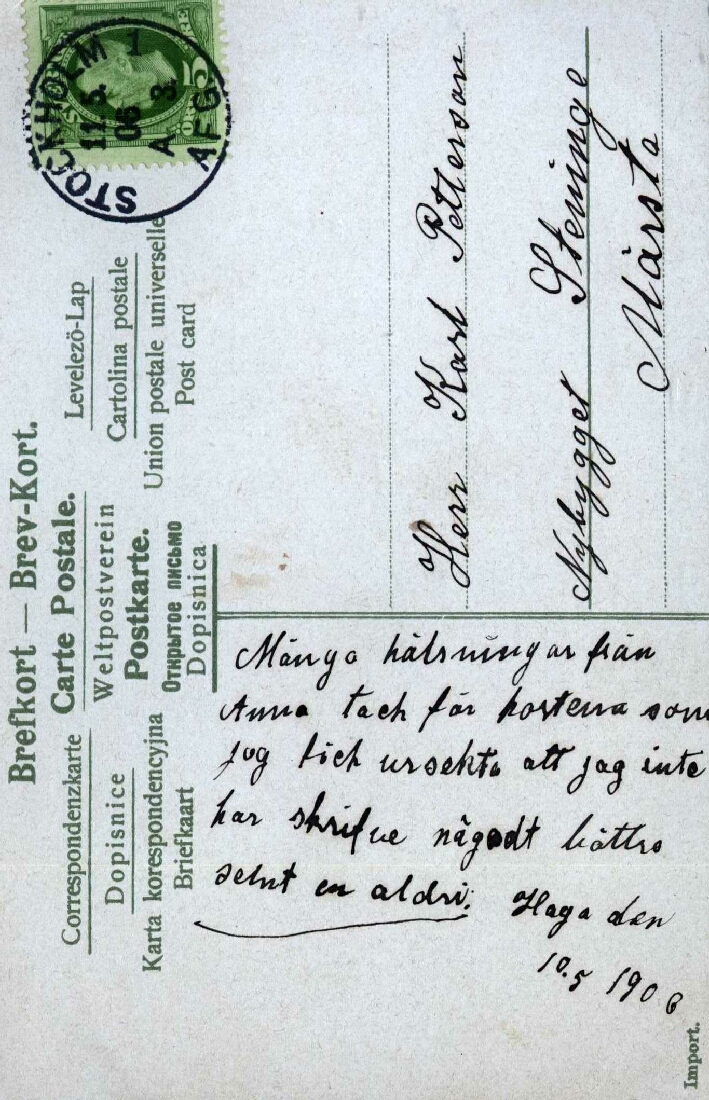 Brefkort — Brev-Kort.
Carte Postale.
Correspondenzkarte
Weltpostverein
Levelező-Lap
Dopisnice
Postkarte.
Cartolina postale
Karta korespondencyjna
Открытое письмо
Union postale universelle
Briefkaart
Dopisnica
Post card
STOCKHOLM 1
11.5.
06
A 3.
AFG
5
ÖRE
Herr Karl Petterson
Nybygget Steninge
Märsta
Många hälsningar från
Anna tack för kortena som
jag fick ursekta att jag inte
har skrifve någodt bättre
sent en aldri.
Haga den
10.5 1906
Import.